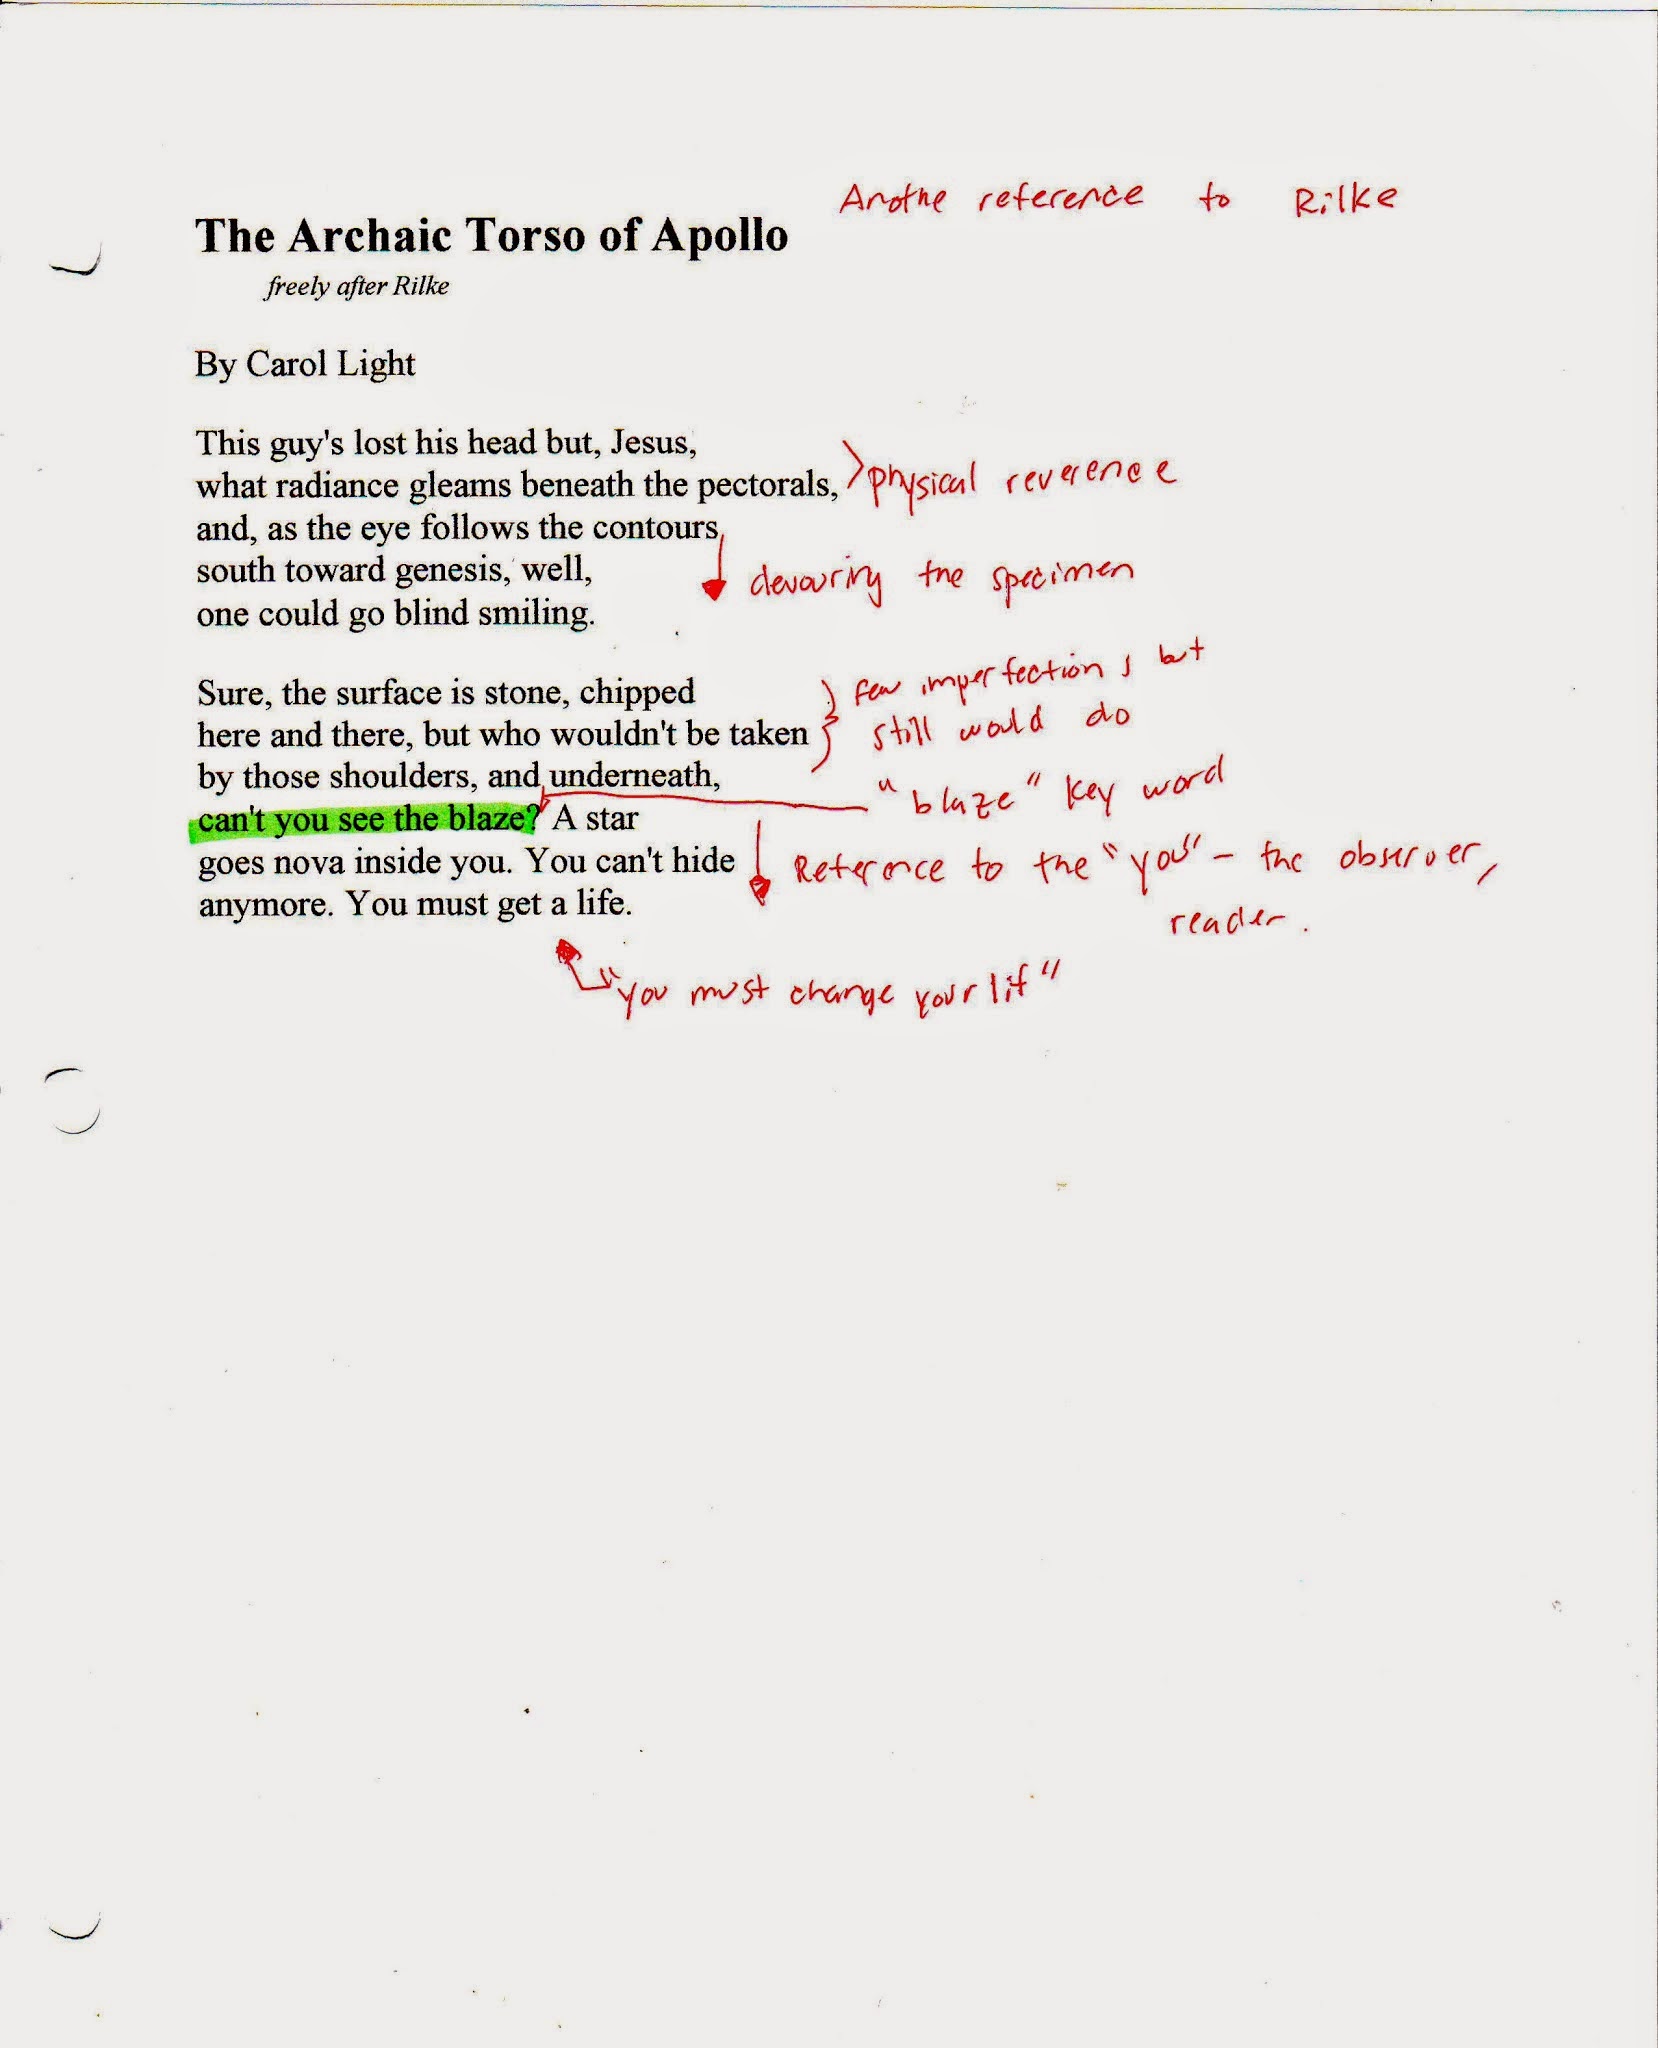 Anothe reference to Rilke
The Archaic Torso of Apollo
freely after Rilke
By Carol Light
This guy's lost his head but, Jesus,
what radiance gleams beneath the pectorals,
physical reverence
and, as the eye follows the contours,
south toward genesis, well,
devouring the specimen
one could go blind smiling.
Sure, the surface is stone, chipped
few imperfections but
here and there, but who wouldn't be taken
still would do
by those shoulders, and underneath,
"blaze" key word
can't you see the blaze? A star
goes nova inside you. You can't hide
Reference to the "you" - the observer,
anymore. You must get a life.
reader.
"You must change your lif"